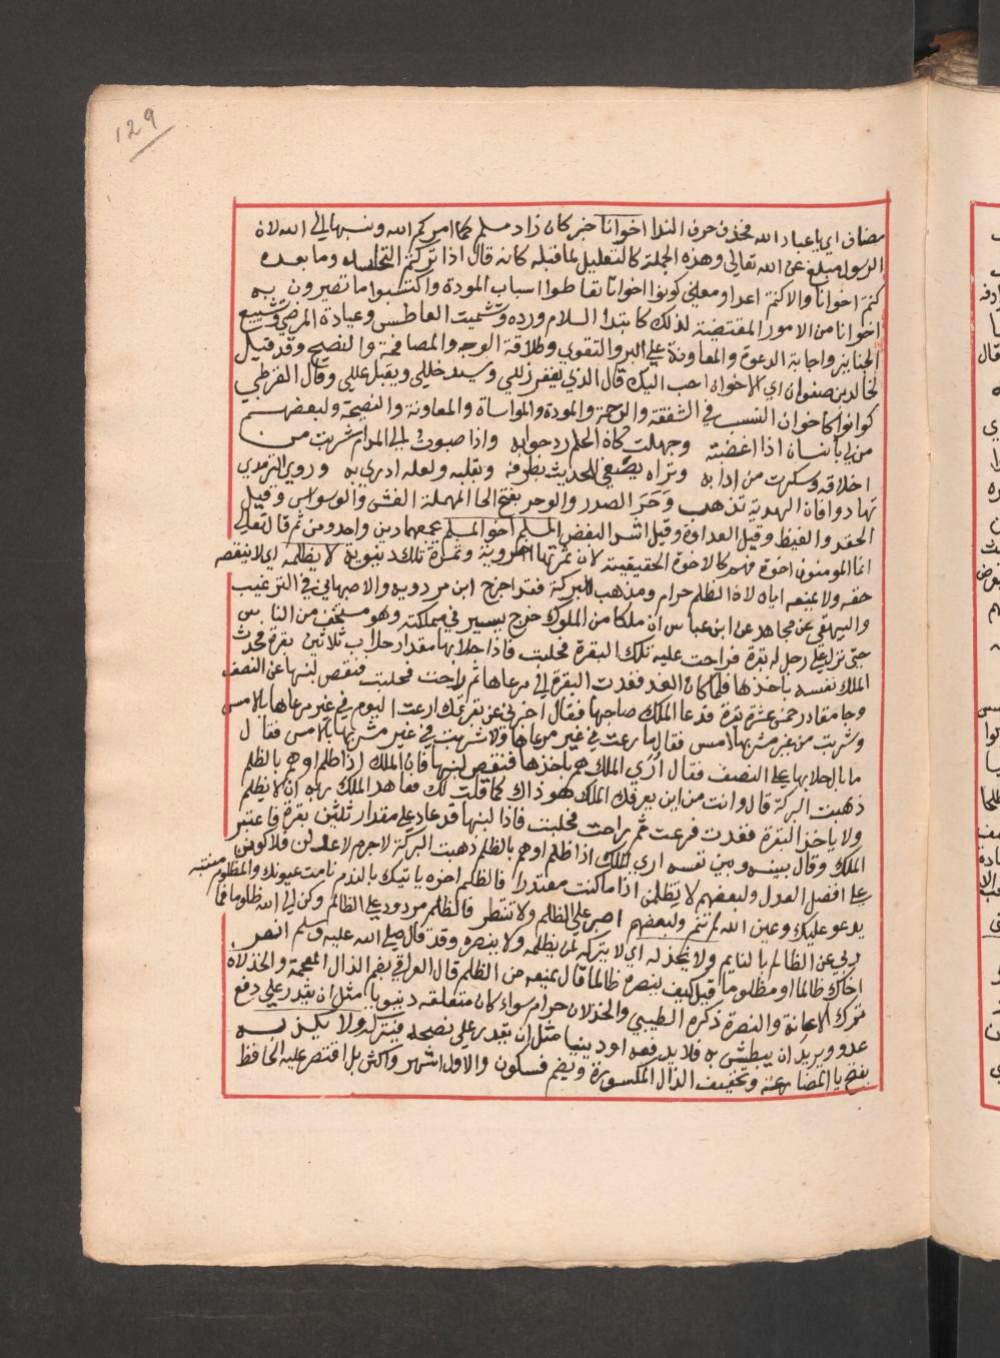 129
مضاف اي يا عباد الله فحذف حرف الندا اخوانا خبر كان زاد مسلم كما امركم الله ونسبها الي الله لان
الرسول مبلغ عن الله تعالي وهذه الجملة كالتعليل لما قبله كانه قال اذا تركتم التحاسد وما بعده
كنتم اخوانا والا كنتم اعدا ومعني كونوا اخوانا تعاطوا اسباب المودة واكتسبوا ما تصيرون به
اخوانا من الامور المقتضية لذلك كابتدا السلام ورده وتشميت العاطس وعيادة المرضي وتشييع
الجنايز واجابة الدعوة والمعاونة علي البر والتقوي وطلاقة الوجه والمصافحة والنصيح وقد قيل
لخالد بن صفوان اي الاخوان احب اليك قال الذي يغفر زللي ويسد خللي ويقبل عللي وقال القرطبي
كونوا كاخوان النسب في الشفقة والرحمة والمودة والمواساة والمعاونة والنصيحة ولبعضهم
من لي بانسان اذا اغضبته وجهلت كان الحلم رد جوابه واذا صبوت الي المدام شربت من
اخلاقه وسكرت من ادابه وتراه يصغي للحديث بطرفه وبقلبه ولعله ادري به وروي الترمذي
تهادوا فان الهدية تذهب وحر الصدر والوحر بفتح الحا المهملة الغش والوسواس وقيل
الحقد والغيظ وقيل العداوة وقيل اشد البغض المسلم اخو المسلم يجمعهما دين واحد ومن ثم قال تعالي
انما المومنون اخوة فهم كالاخوة الحقيقية لان ثمرتها اخروية وثمرة تلك دنيوية لا يظلمه اي لا ينقصه
حقه ولا يمنعه اياه لان الظلم حرام ومذهب للبركة فقد اخرج ابن مردويه والاصبهاني في الترغيب
والبيهقي عن مجاهد عن ابن عباس ان ملكا من الملوك خرج يسير في مملكته وهو مستخف من الناس
حتي نزل علي رجل له بقرة فراحت عليه تلك البقرة فحلبت فاذا حلابها مقدار حلاب ثلاثين بقرة فحدث
الملك نفسه باخذها فلما كان الغد فغدت البقرة الي مرعاها ثم راحت فحلبت فنقص لبنها عن النصف
وجا مقدار خمس عشرة بقرة فدعا الملك صاحبها فقال اخبرني عن بقرتك ارعت اليوم في غير مرعاها بالامس
وشربت من غير مشربها بالامس فقال ما رعت في غير مرعاها ولا شربت في غير مشربها بالامس فقال
ما بال حلابها علي النصف فقال اري الملك هم باخذها فنقص لبنها فان الملك اذا ظلم او هم بالظلم
ذهبت البركة قال وانت من اين يعرفك الملك هو ذاك كما قلت لك فعاهد الملك ربه ان لا يظلم
ولا ياخذ البقرة فغدت فرعت ثم راحت فحلبت فاذا لبنها قد عاد علي مقدار ثلثين بقرة فاعتبر
الملك وقال بينه وبين نفسه اري الملك اذا ظلم او هم بالظلم ذهبت البركة لا جرم لاعدلن فلاكونن
علي افضل العدل ولبعضهم لا تظلمن اذا ما كنت مقتدرا فالظلم اخره ياتيك بالندم نامت عيونك والمظلوم منتبه
يدعو عليك وعين الله لم تنم ولبعضهم اصبر علي الظلم ولا تنتظر فالظلم مردود علي الظالم وكل الي الله ظلوما فما
ربي عن الظالم بالنايم ولا يخذله اي لا يتركه لمن يظلمه ولا ينصره وقد قال صلي الله عليه وسلم انصر
اخاك ظالما او مظلوما قيل كيف ينصره ظالما قال يمنعه من الظلم قال العراقي بضم الذال المعجمة والخذلان
ترك الاعانة والنصرة ذكره الطيبي والخذلان حرام سواء كان متعلقه دنيويا مثل ان يقدر علي دفع
عدو ويريد ان يبطش به فلا يدفعه او دينيا مثل ان يقدر علي نصحه فيتركه ولا يكذبه
بفتح يا المضارعة وتخفيف الذال المكسورة وبضم فسكون والاول اشهر واكثر بل اقتصر عليه الحافظ